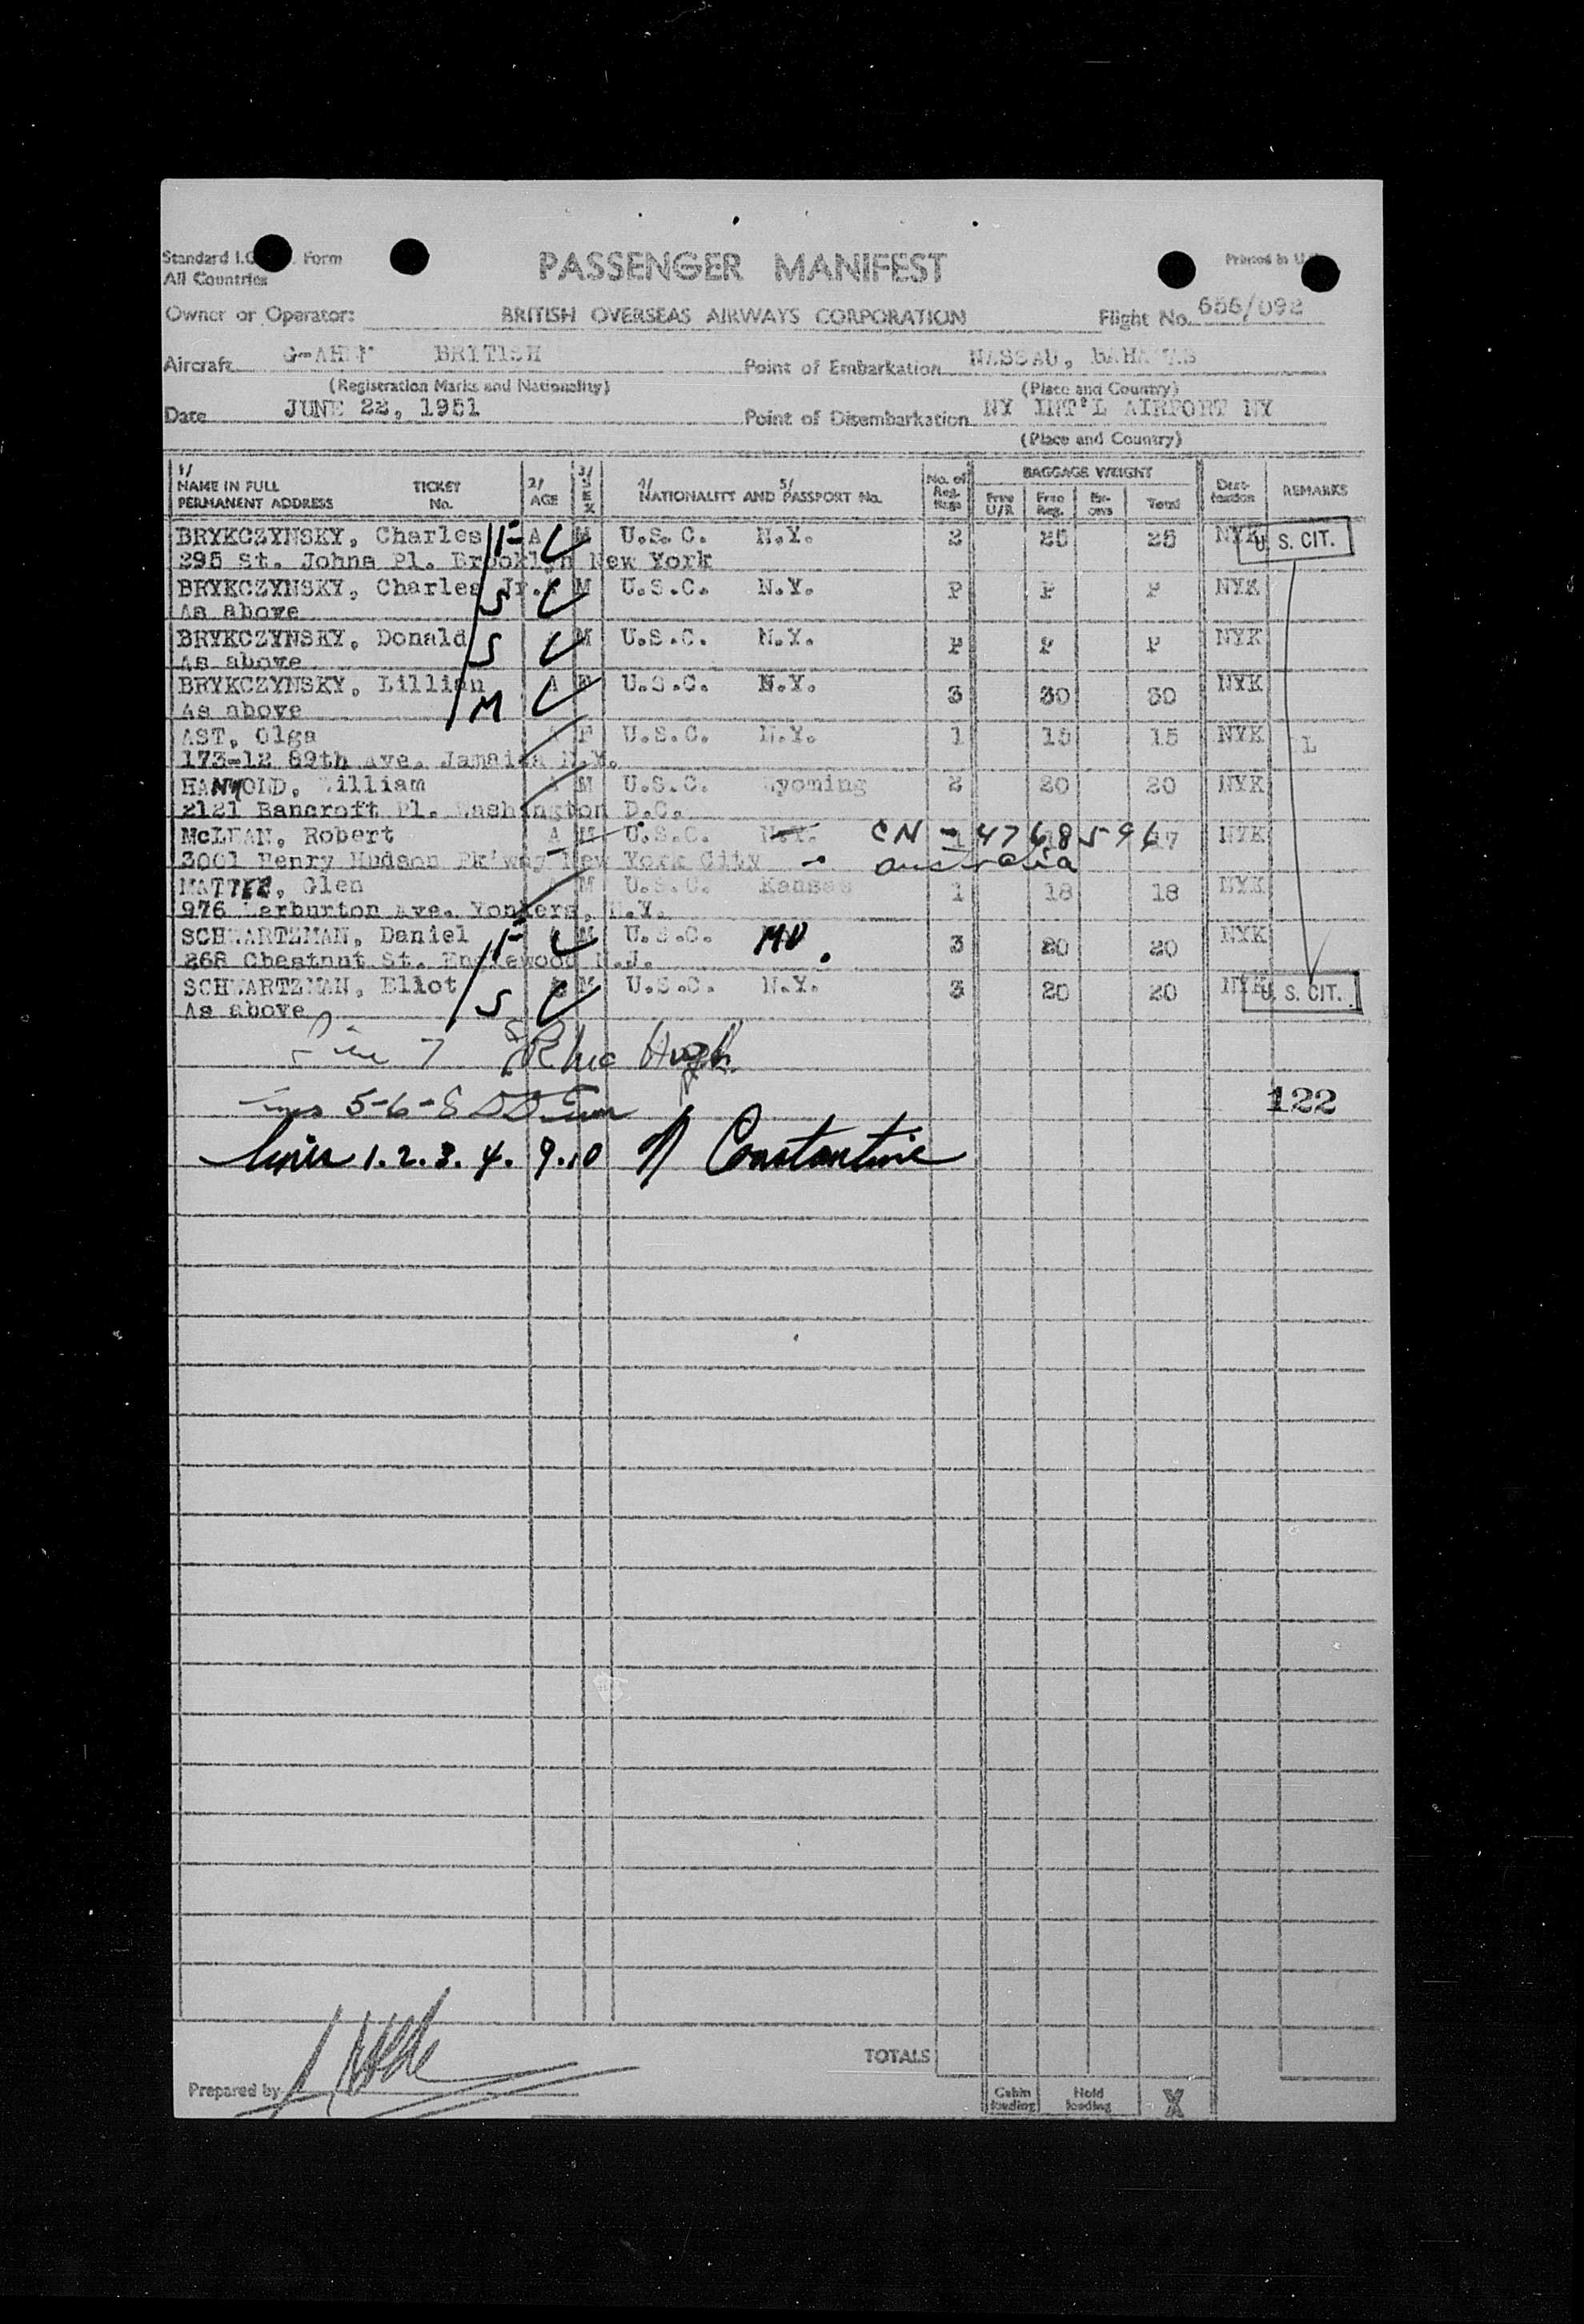 Standard I.C. Form
All Countries
PASSENGER MANIFEST
Printed in U.
Owner or Operator: BRITISH OVERSEAS AIRWAYS CORPORATION Flight No. 656/092
Aircraft BRITISH Point of Embarkation NASSAU, BAHAMAS
(Registration Marks and Nationality) (Place and Country)
Date JUNE 22, 1951 Point of Disembarkation NY INT'L AIRPORT NY
(Place and Country)
1/ NAME IN FULL PERMANENT ADDRESS TICKET No. 2/ AGE 3/ SEX 4/ NATIONALITY AND 5/ PASSPORT No. No. of Reg. Bags BAGGAGE WEIGHT Free U/R Free Reg. Ex-cess Total Dest-ination REMARKS
BRYKCZYNSKY, Charles F A M U.S.C. N.Y. 2 25 25 NYK U. S. CIT.
295 St. Johns Pl. Brooklyn New York
BRYKCZYNSKY, Charles Jr. S M U.S.C. N.Y. P P P NYK
As above
BRYKCZYNSKY, Donald S M U.S.C. N.Y. P P P NYK
As above
BRYKCZYNSKY, Lillian M A F U.S.C. N.Y. 3 30 30 NYK
As above
AST, Olga A F U.S.C. N.Y. 1 15 15 NYK L
173-12 89th Ave. Jamaica N.Y.
HANYOLD, William A M U.S.C. Wyoming 2 20 20 NYK
2121 Bancroft Pl. Washington D.C.
McLEAN, Robert A M U.S.C. N.Y. CN - 4768596 17 NYK
3001 Henry Hudson Pk'way New York City Australia
MATTER, Glen M U.S.C. Kansas 1 18 18 NYK
976 Warburton Ave. Yonkers, N.Y.
SCHWARTZMAN, Daniel F M U.S.C. MD. 3 20 20 NYK
268 Chestnut St. Englewood N.J.
SCHWARTZMAN, Eliot S M U.S.C. N.Y. 3 20 20 NYK U. S. CIT.
As above
Line 7
5-6-8
122
lines 1.2.3.4. 9.10 Constantine
TOTALS
Prepared by
Cabin loading Hold loading X